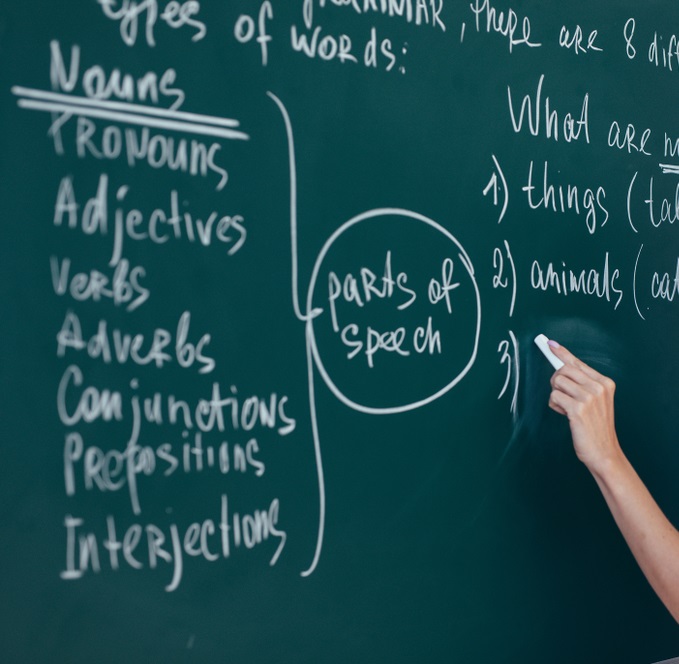 GRAMMAR, there are 8 diff
types of words:
Nouns
Pronouns
Adjectives
Verbs
Adverbs
Conjunctions
Prepositions
Interjections
parts of
speech
What are n
1) things (tal
2) animals (cat
3)